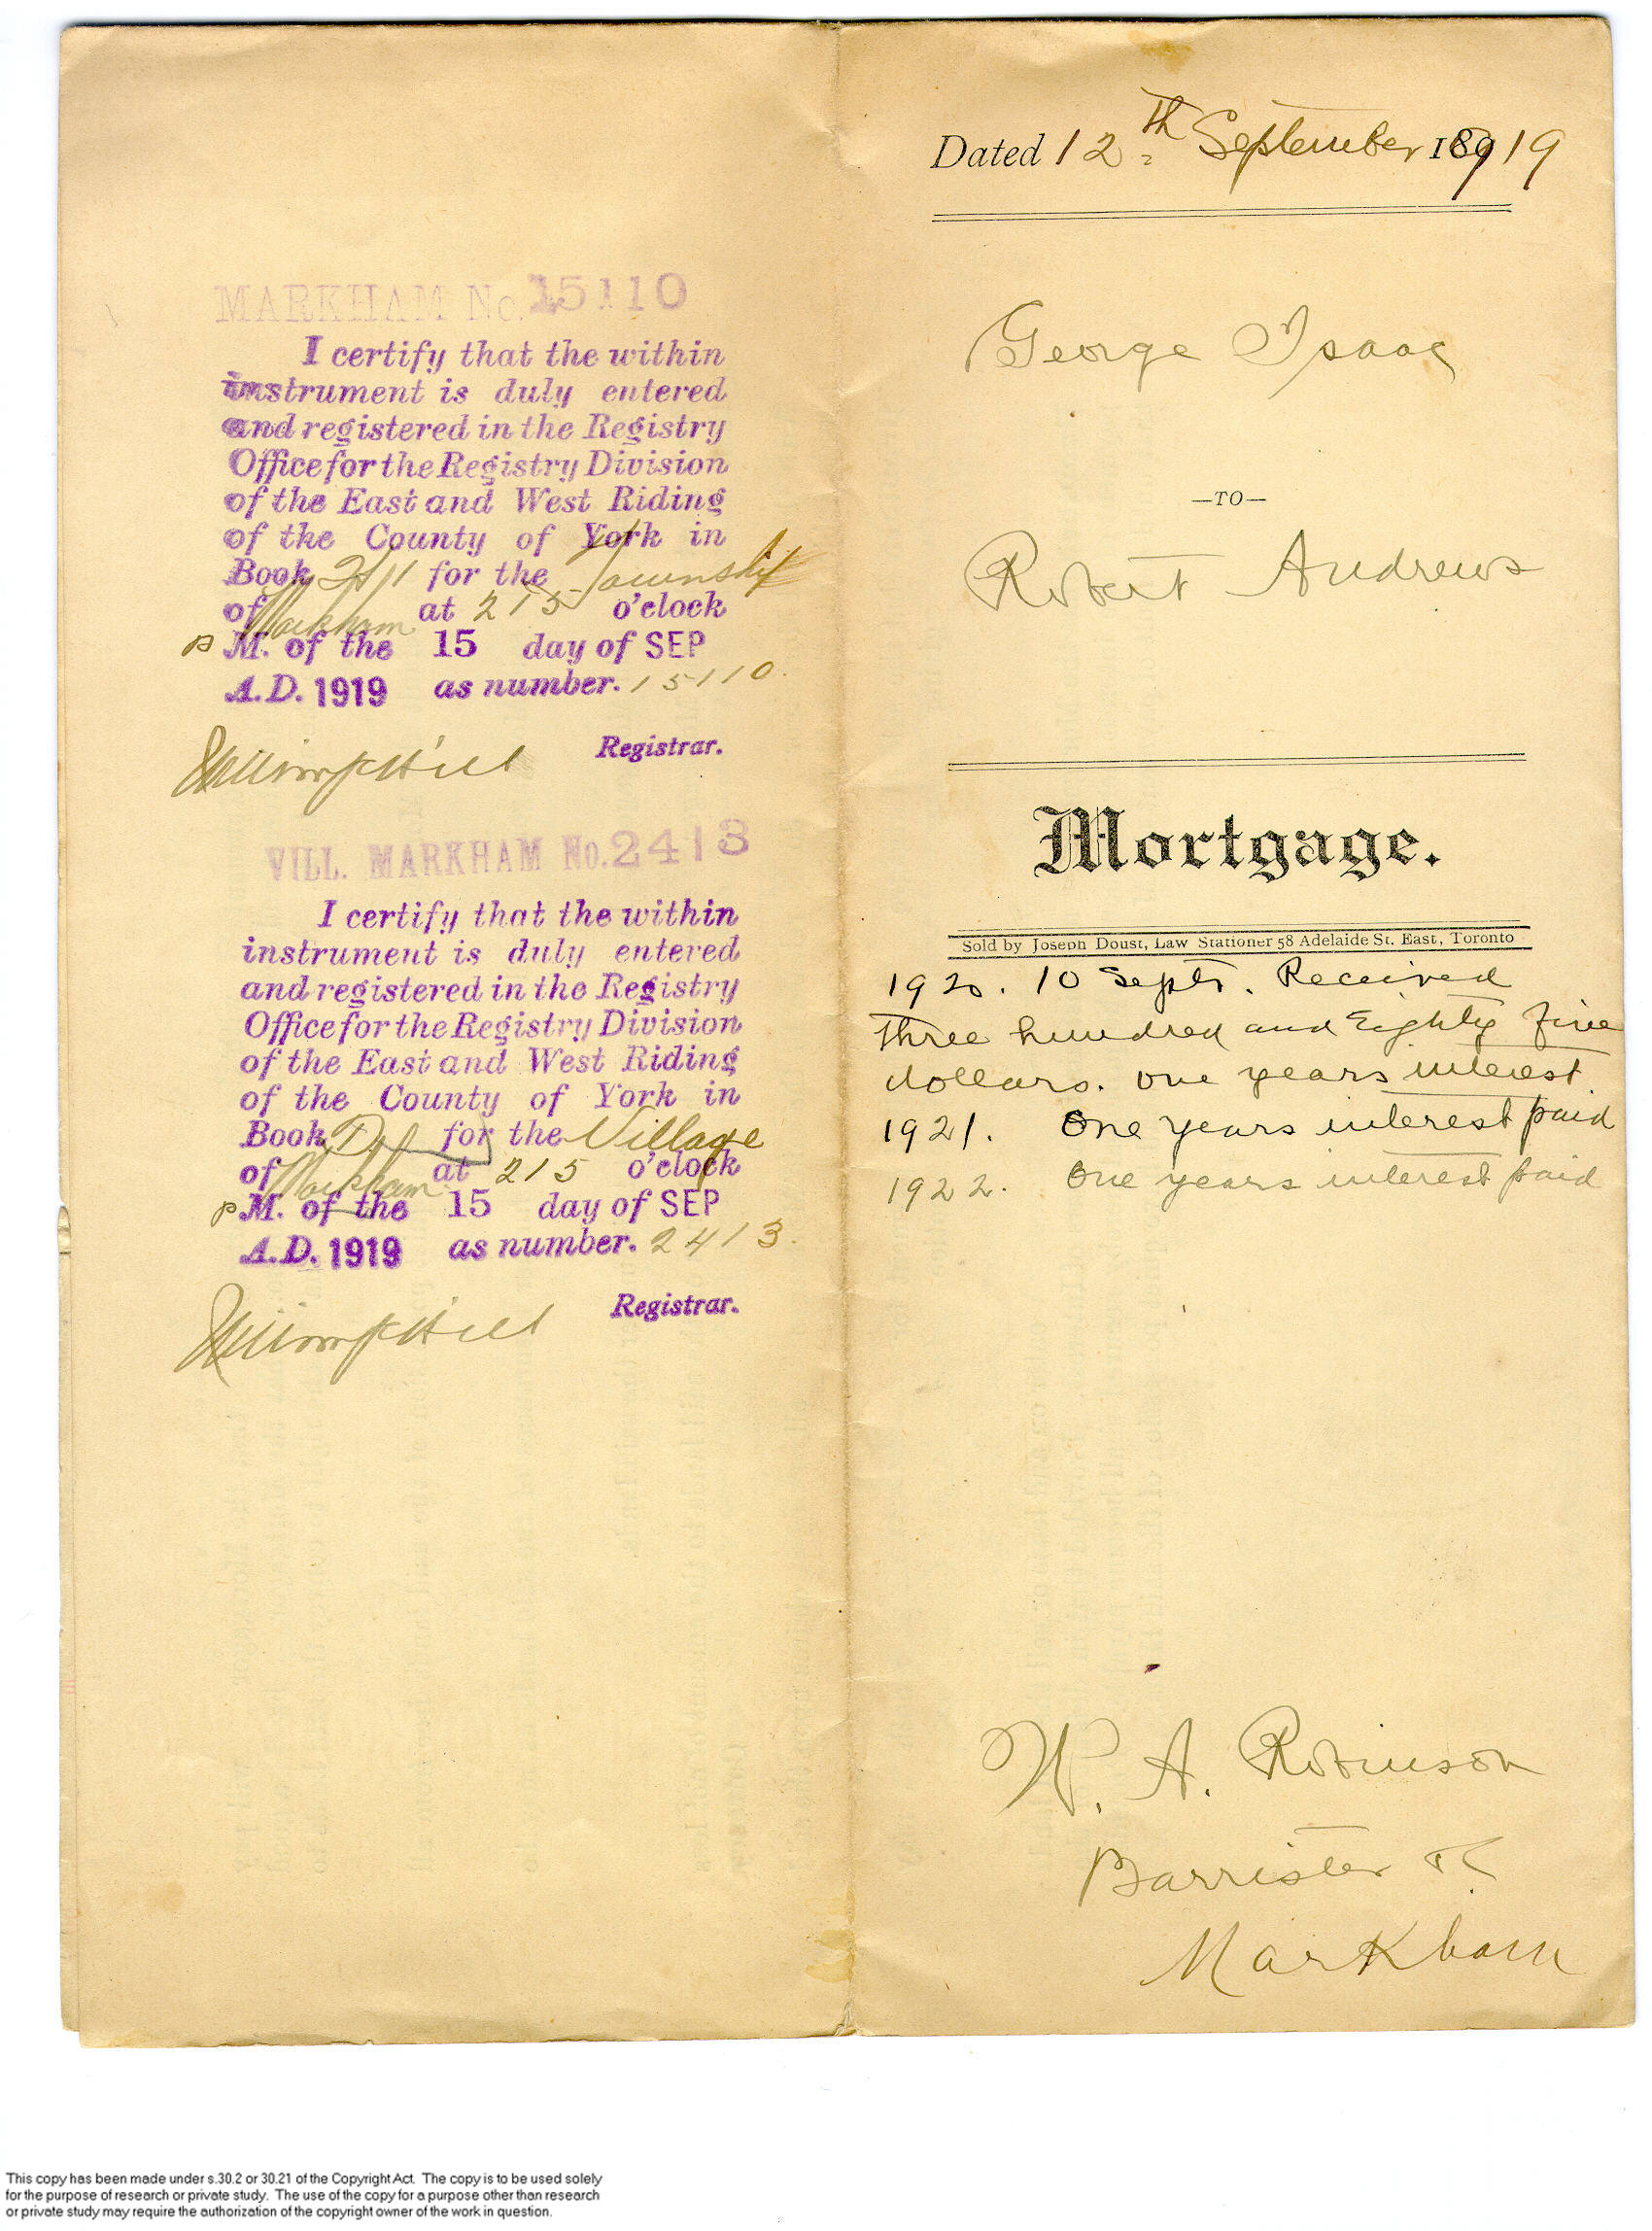 MARKHAM No. 15110
I certify that the within
instrument is duly entered
and registered in the Registry
Office for the Registry Division
of the East and West Riding
of the County of York in
Book for the Township
of Markham at 215 o'clock
P M. of the 15 day of SEP
A.D. 1919 as number. 15110.
Registrar.
VILL. MARKHAM No. 2413
I certify that the within
instrument is duly entered
and registered in the Registry
Office for the Registry Division
of the East and West Riding
of the County of York in
Book D for the Village
of Markham at 215 o'clock
P M. of the 15 day of SEP
A.D. 1919 as number. 2413.
Registrar.
Dated 12th September 1919
George Isaac
—TO—
Robert Andrews
Mortgage.
Sold by Joseph Doust, Law Stationer 58 Adelaide St. East, Toronto
1920. 10 Septr. Received
three hundred and Eighty five
dollars. one years interest.
1921. One years interest paid
1922. One years interest paid
W. A. Robinson
Barrister
Markham
This copy has been made under s.30.2 or 30.21 of the Copyright Act. The copy is to be used solely
for the purpose of research or private study. The use of the copy for a purpose other than research
or private study may require the authorization of the copyright owner of the work in question.